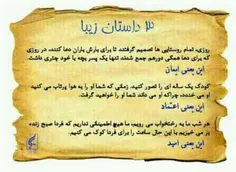 ۳ داستان زیبا
روزی، تمام روستایی ها تصمیم گرفتند تا برای بارش باران دعا کنند، در روزی
که برای دعا همگی دورهم جمع شدند، تنها یک پسر بچه با خود چتری داشت.
این یعنی ایمان
کودک یک ساله ای را تصور کنید، زمانی که شما او را به هوا پرتاب می کنید
او می خندد، چراکه او می داند شما او را خواهید گرفت.
این یعنی اعتماد
هر شب ما به رختخواب می رویم، ما هیچ اطمینانی نداریم که فردا صبح زنده
بر می خیزیم با این حال ساعت را برای فردا کوک می کنیم.
این یعنی امید